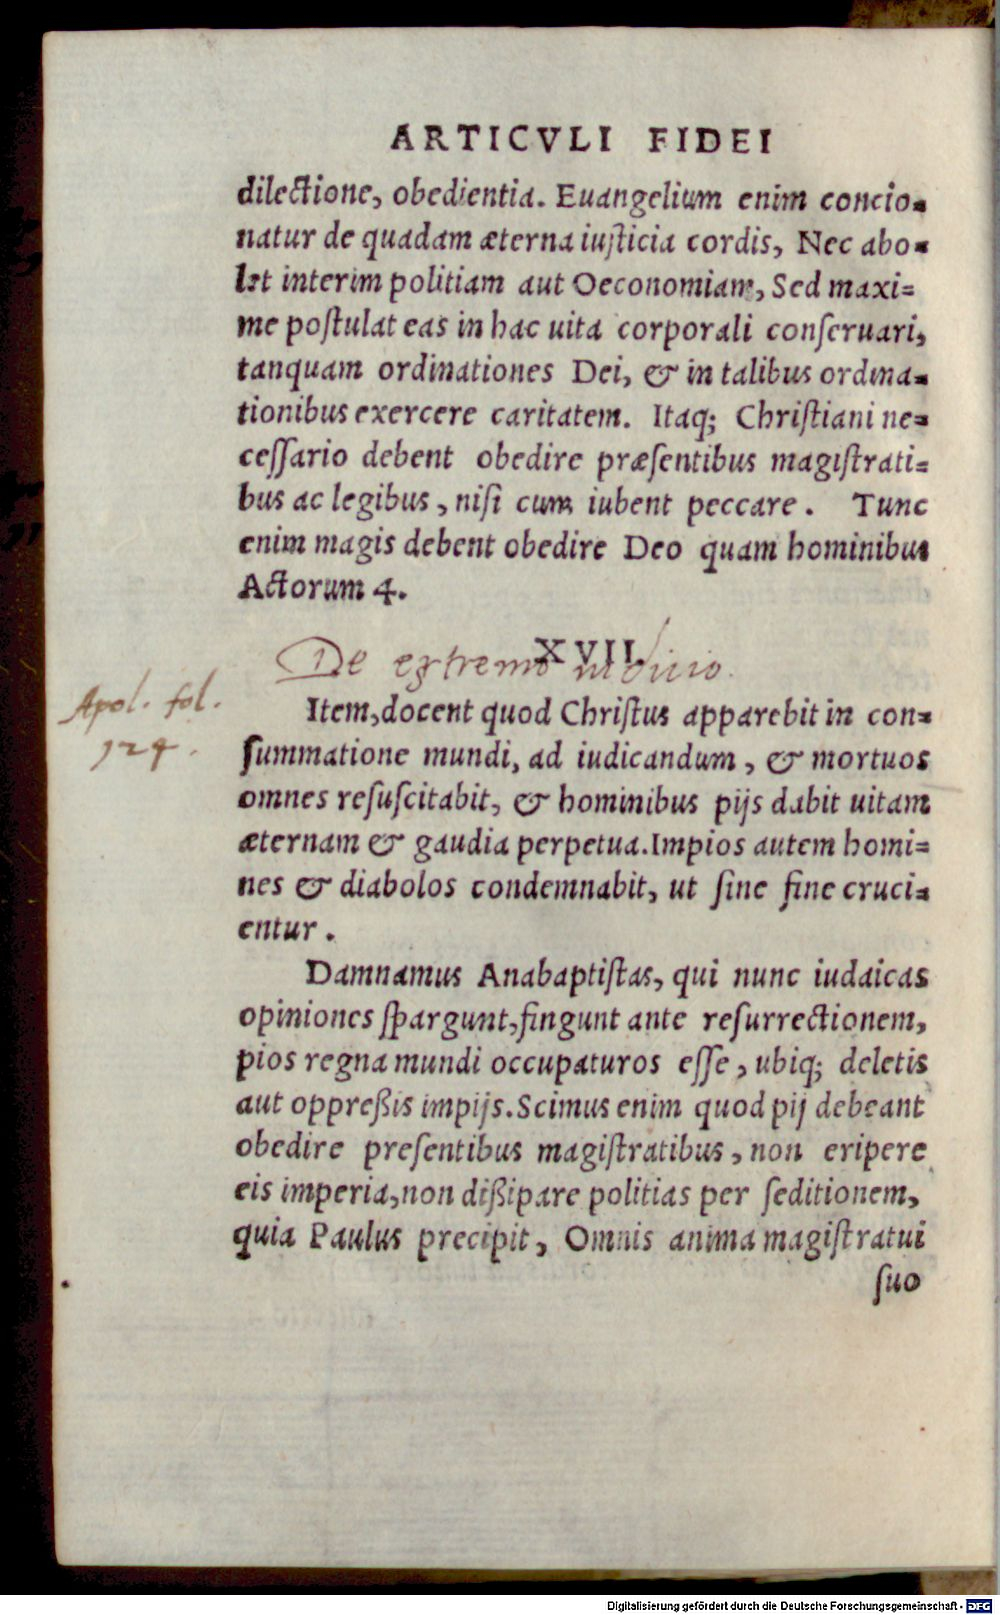 ARTICVLI FIDEI
dilectione, obedientia. Euangelium enim concio-
natur de quadam æterna iuſticia cordis, Nec abo-
let interim politiam aut Oeconomiam, Sed maxi-
me poſtulat eas in hac uita corporali conſeruari,
tanquam ordinationes Dei, & in talibus ordina-
tionibus exercere caritatem. Itaq; Chriſtiani ne-
ceſſario debent obedire præſentibus magiſtrati-
bus ac legibus, niſi cum iubent peccare. Tunc
enim magis debent obedire Deo quam hominibus
Actorum 4.
XVII.
De extremo iudicio.
Apol. fol.
124.
Item, docent quod Chriſtus apparebit in con-
ſummatione mundi, ad iudicandum, & mortuos
omnes reſuſcitabit, & hominibus pijs dabit uitam
æternam & gaudia perpetua. Impios autem homi-
nes & diabolos condemnabit, ut ſine fine cruci-
entur.
Damnamus Anabaptiſtas, qui nunc iudaicas
opiniones ſpargunt, fingunt ante reſurrectionem,
pios regna mundi occupaturos eſſe, ubiq; deletis
aut oppreßis impijs. Scimus enim quod pij debeant
obedire preſentibus magiſtratibus, non eripere
eis imperia, non dißipare politias per ſeditionem,
quia Paulus precipit, Omnis anima magiſtratui
ſuo
Digitalisierung gefördert durch die Deutsche Forschungsgemeinschaft - DFG